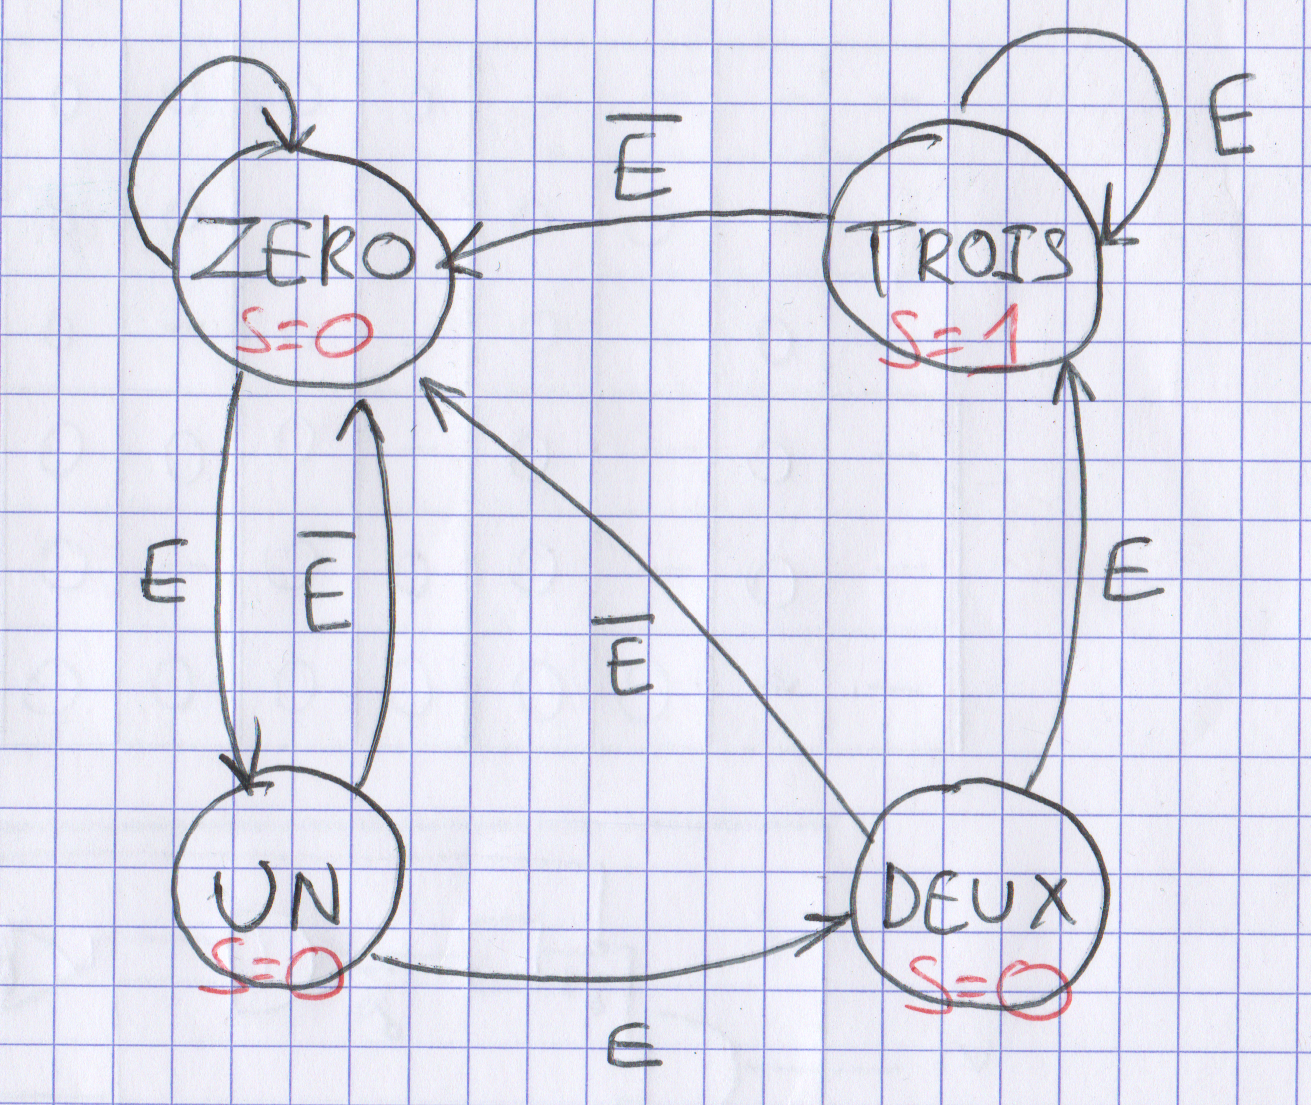 E̅
E
ZERO
S=0
TROIS
S=1
E
E̅
E̅
E
UN
S=0
DEUX
S=0
E